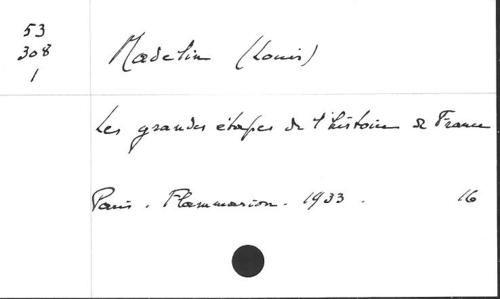 53
308
1
Madelin (Louis)
Les grandes étapes de l'histoire de France
Paris. Flammarion. 1933. 16